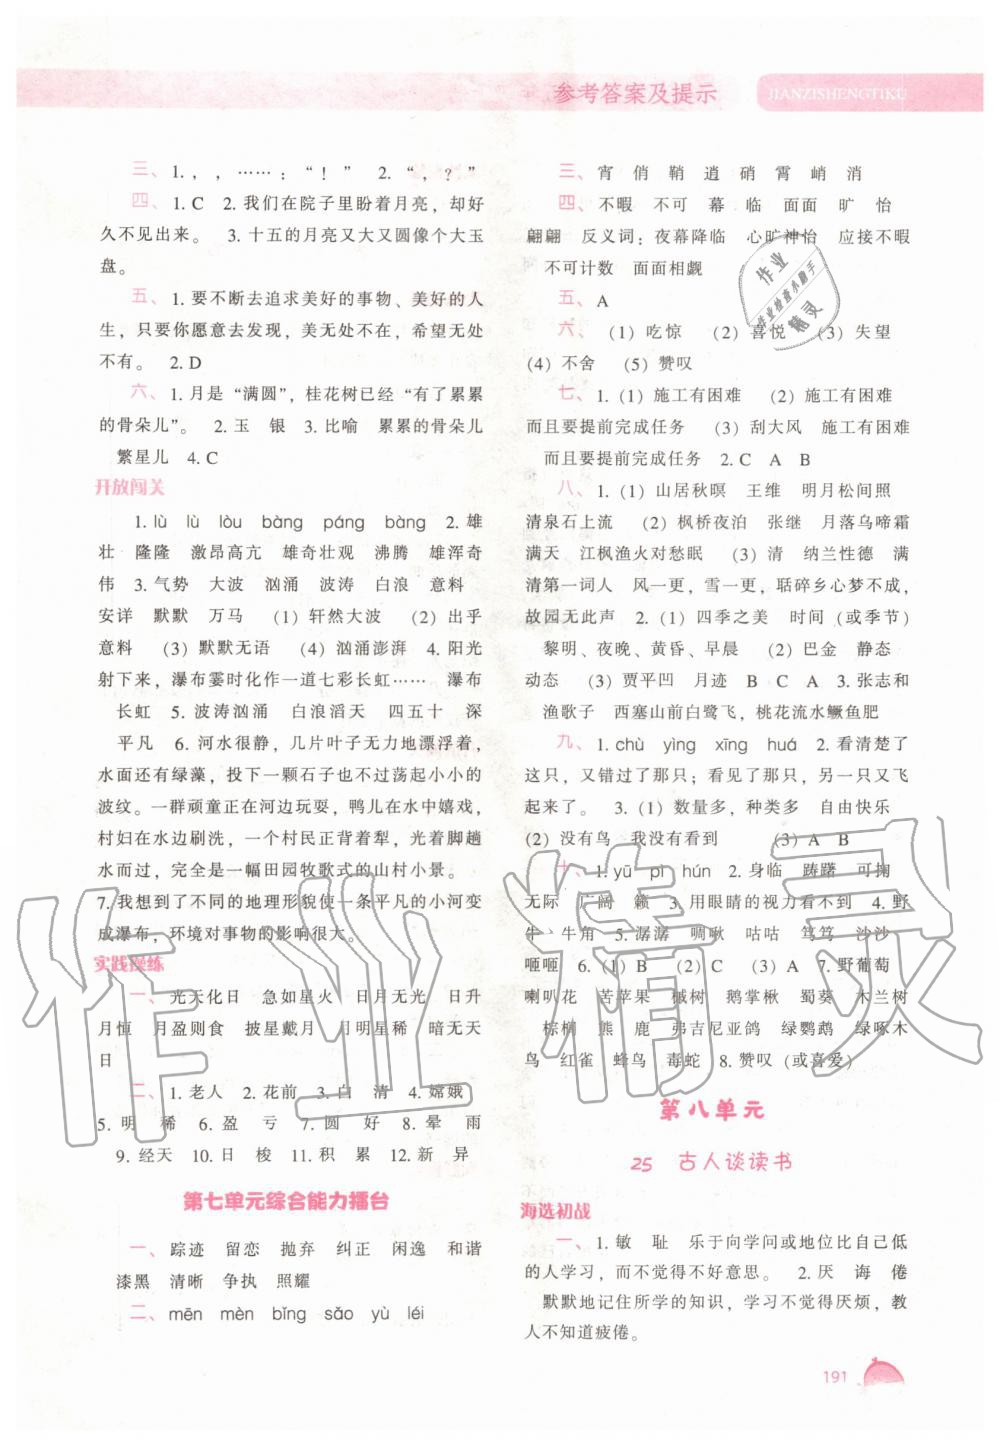 参考答案及提示
JIANZISHENGTIKU
三、1. ，，……：“！” 2. “，？”
四、1. C 2. 我们在院子里盼着月亮，却好
久不见出来。 3. 十五的月亮又大又圆像个大玉
盘。
五、1. 要不断去追求美好的事物、美好的人
生，只要你愿意去发现，美无处不在，希望无处
不有。 2. D
六、1. 月是“满圆”，桂花树已经“有了累累
的骨朵儿”。 2. 玉 银 3. 比喻 累累的骨朵儿
繁星儿 4. C
开放闯关
1. lù lù lòu bàng páng bàng 2. 雄
壮 隆隆 激昂高亢 雄奇壮观 沸腾 雄浑奇
伟 3. 气势 大波 汹涌 波涛 白浪 意料
安详 默默 万马 (1) 轩然大波 (2) 出乎
意料 (3) 默默无语 (4) 汹涌澎湃 4. 阳光
射下来，瀑布霎时化作一道七彩长虹…… 瀑布
长虹 5. 波涛汹涌 白浪滔天 四五十 深
平凡 6. 河水很静，几片叶子无力地漂浮着，
水面还有绿藻，投下一颗石子也不过荡起小小的
波纹。一群顽童正在河边玩耍，鸭儿在水中嬉戏，
村妇在水边刷洗，一个村民正背着犁，光着脚趟
水而过，完全是一幅田园牧歌式的山村小景。
7. 我想到了不同的地理形貌使一条平凡的小河变
成瀑布，环境对事物的影响很大。
实践操练
一、光天化日 急如星火 日月无光 日升
月恒 月盈则食 披星戴月 月明星稀 暗无天
日
二、1. 老人 2. 花前 3. 白 清 4. 嫦娥
5. 明 稀 6. 盈 亏 7. 圆 好 8. 晕 雨
9. 经天 10. 日 梭 11. 积 累 12. 新 异
第七单元综合能力擂台
一、踪迹 留恋 抛弃 纠正 闲逸 和谐
漆黑 清晰 争执 照耀
二、mēn mèn bǐng sǎo yù léi
三、宵 俏 鞘 逍 硝 霄 峭 消
四、不暇 不可 幕 临 面面 旷 怡
翩翩 反义词：夜幕降临 心旷神怡 应接不暇
不可计数 面面相觑
五、A
六、(1) 吃惊 (2) 喜悦 (3) 失望
(4) 不舍 (5) 赞叹
七、1. (1) 施工有困难 (2) 施工有困难
而且要提前完成任务 (3) 刮大风 施工有困难
而且要提前完成任务 2. C A B
八、1. (1) 山居秋暝 王维 明月松间照
清泉石上流 (2) 枫桥夜泊 张继 月落乌啼霜
满天 江枫渔火对愁眠 (3) 清 纳兰性德 满
清第一词人 风一更，雪一更，聒碎乡心梦不成，
故园无此声 2. (1) 四季之美 时间 (或季节)
黎明、夜晚、黄昏、早晨 (2) 巴金 静态
动态 (3) 贾平凹 月迹 B C A 3. 张志和
渔歌子 西塞山前白鹭飞，桃花流水鳜鱼肥
九、1. chù yìng xīng huá 2. 看清楚了
这只，又错过了那只；看见了那只，另一只又飞
起来了。 3. (1) 数量多，种类多 自由快乐
(2) 没有鸟 我没有看到 (3) A B
十、1. yū pì hún 2. 身临 踌躇 可掬
无际 广阔 籁 3. 用眼睛的视力看不到 4. 野
牛 牛角 5. 潺潺 啁啾 咕咕 笃笃 沙沙
咂咂 6. (1) B (2) C (3) A 7. 野葡萄
喇叭花 苦苹果 槭树 鹅掌楸 蜀葵 木兰树
棕榈 熊 鹿 弗吉尼亚鸽 绿鹦鹉 绿啄木
鸟 红雀 蜂鸟 毒蛇 8. 赞叹 (或喜爱)
第八单元
25 古人谈读书
海选初战
一、1. 敏 耻 乐于向学问或地位比自己低
的人学习，而不觉得不好意思。 2. 厌 诲 倦
默默地记住所学的知识，学习不觉得厌烦，教
人不知道疲倦。
191
作业精灵